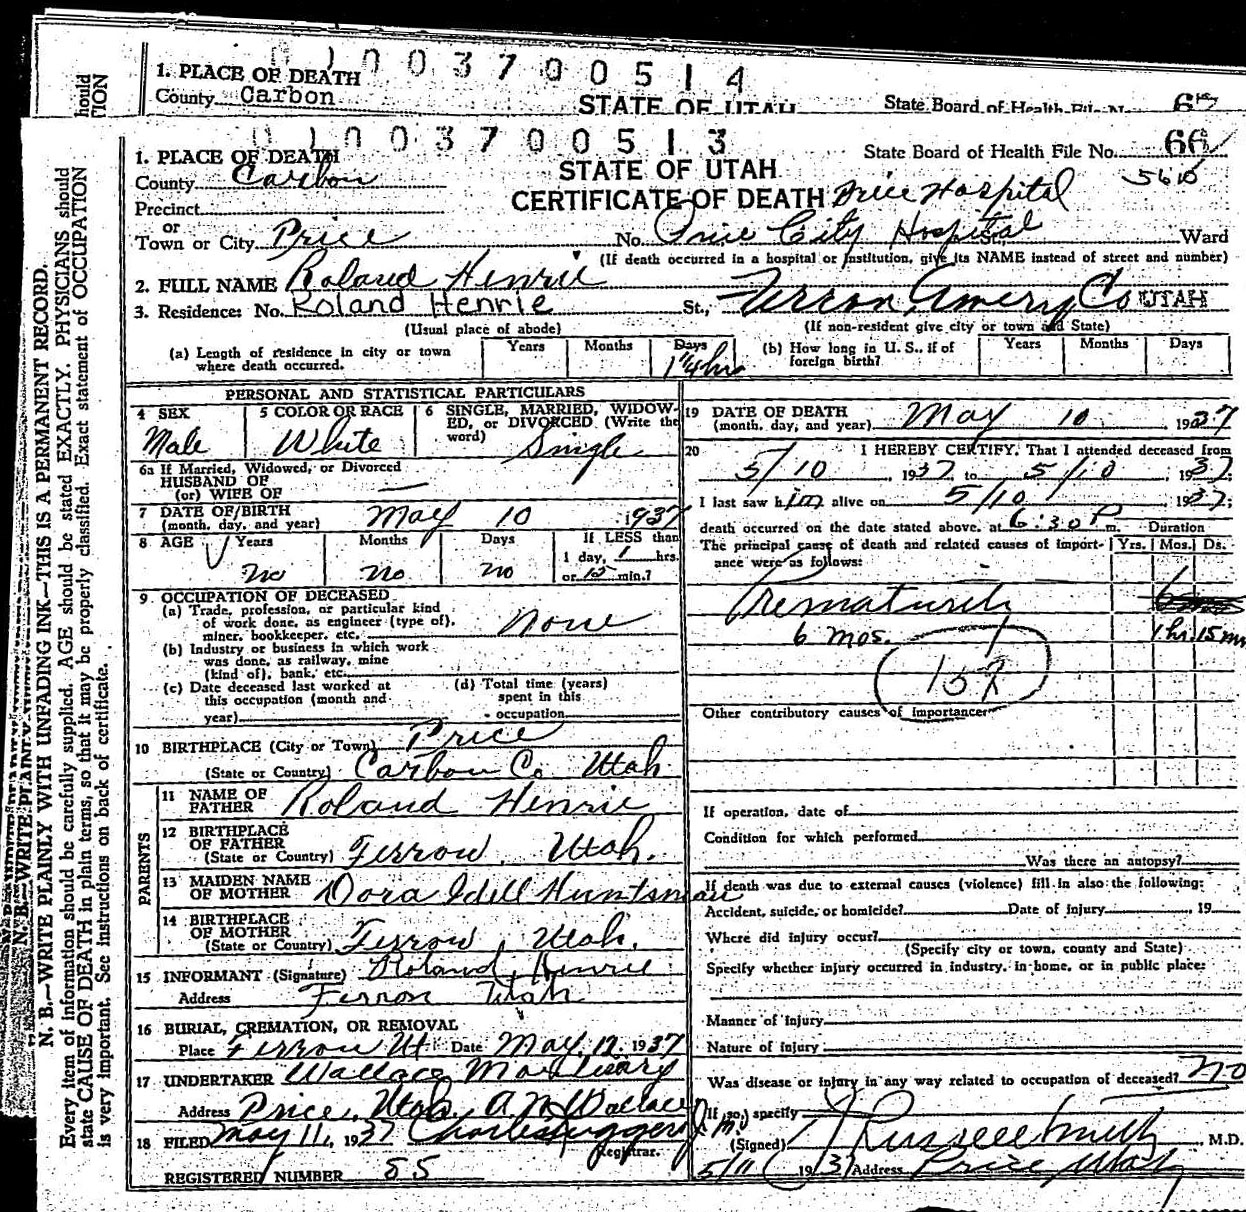 0 1 0 0 3 7 0 0 5 1 4
1. PLACE OF DEATH
County Carbon
STATE OF UTAH
State Board of Health File No.
0 1 0 0 3 7 0 0 5 1 3
1. PLACE OF DEATH
County Carbon
STATE OF UTAH
CERTIFICATE OF DEATH
State Board of Health File No. 66
Price Hospital
Precinct
or
Town or City Price
No. Price City Hospital St., Ward
(If death occurred in a hospital or institution, give its NAME instead of street and number)
2. FULL NAME Roland Henrie
3. Residence: No. Roland Henrie St., Ferron, Emery Co UTAH
(Usual place of abode)
(If non-resident give city or town and State)
(a) Length of residence in city or town where death occurred.
Years Months Days
1 1/4 hrs
(b) How long in U. S., if of foreign birth?
Years Months Days
PERSONAL AND STATISTICAL PARTICULARS
4 SEX
Male
5 COLOR OR RACE
White
6 SINGLE, MARRIED, WIDOWED, or DIVORCED (Write the word)
Single
6a If Married, Widowed, or Divorced
HUSBAND OF
(or) WIFE OF —
7 DATE OF BIRTH
(month, day, and year) May 10 1937
8 AGE Years Months Days If LESS than
1 day, 1 hrs.
no no no or 15 min.?
9 OCCUPATION OF DECEASED
(a) Trade, profession, or particular kind
of work done, as engineer (type of),
miner, bookkeeper, etc. None
(b) Industry or business in which work
was done, as railway, mine
(kind of), bank, etc.
(c) Date deceased last worked at
this occupation (month and
year)
(d) Total time (years)
spent in this
occupation
10 BIRTHPLACE (City or Town) Price
(State or Country) Carbon Co Utah
PARENTS
11 NAME OF
FATHER Roland Henrie
12 BIRTHPLACE
OF FATHER
(State or Country) Ferron, Utah.
13 MAIDEN NAME
OF MOTHER Dora Idell Huntsman
14 BIRTHPLACE
OF MOTHER
(State or Country) Ferron, Utah.
15 INFORMANT (Signature) Roland Henrie
Address Ferron Utah
16 BURIAL, CREMATION, OR REMOVAL
Place Ferron Ut Date May 12 1937
17 UNDERTAKER Wallace Mortuary
Address Price, Utah. A N Wallace
18 FILED May 11, 1937
Registrar.
REGISTERED NUMBER 55
19 DATE OF DEATH
(month, day, and year) May 10 1937
20 I HEREBY CERTIFY, That I attended deceased from
5/10, 1937 to 5/10, 1937;
I last saw him alive on 5/10 1937;
death occurred on the date stated above, at 6:30 P m. Duration
The principal cause of death and related causes of importance were as follows:
Yrs. Mos. Ds.
Prematurity
6 mos.
1 hr. 15 min
Other contributory causes of importance
If operation, date of
Condition for which performed
Was there an autopsy?
If death was due to external causes (violence) fill in also the following:
Accident, suicide, or homicide? Date of injury , 19
Where did injury occur?
(Specify city or town, county and State)
Specify whether injury occurred in industry, in home, or in public place:
Manner of injury
Nature of injury
Was disease or injury in any way related to occupation of deceased? No
If so, specify
(Signed) J Russell Smith, M.D.
5/11 1937 Address Price Utah
N. B.—WRITE PLAINLY WITH UNFADING INK—THIS IS A PERMANENT RECORD.
Every item of information should be carefully supplied. AGE should be stated EXACTLY. PHYSICIANS should
state CAUSE OF DEATH in plain terms, so that it may be properly classified. Exact statement of OCCUPATION
is very important. See instructions on back of certificate.